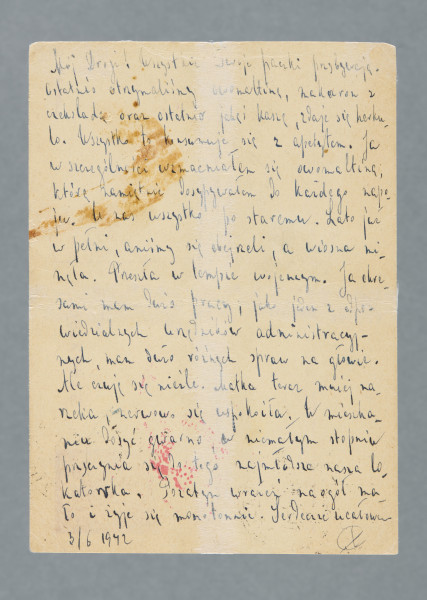 Mój Drogi! Wszystkie Twoje paczki przybywają.
Ostatnio otrzymaliśmy owomaltinę, makaron z
czekoladą oraz ostatnio jakąś kaszę, zdaje się herku-
lo. Wszystko to konsumuje się z apetytem. Ja
w szczególności wzmacniałem się owomaltiną,
którą namiętnie dosypywałem do każdego napo-
ju. U nas wszystko po staremu. Lato już
w pełni, aniśmy się obejrzeli, a wiosna mi-
nęła. Przeszła w tempie wojennym. Ja okre-
sami mam dużo pracy, jako jeden z odpo-
wiedzialnych urzędników administracyj-
nych, mam dużo różnych spraw na głowie.
Ale czuję się nieźle. Matka teraz mniej na-
rzeka, nerwowo się uspokoiła. W mieszka-
niu dosyć gwarno w niemałym stopniu
przyczynia się do tego najmłodsza nasza lo-
katorka. Pozatym wrażeń naogół ma-
ło i żyje się monotonnie. Serdecznie ucałowa
3/6 1942